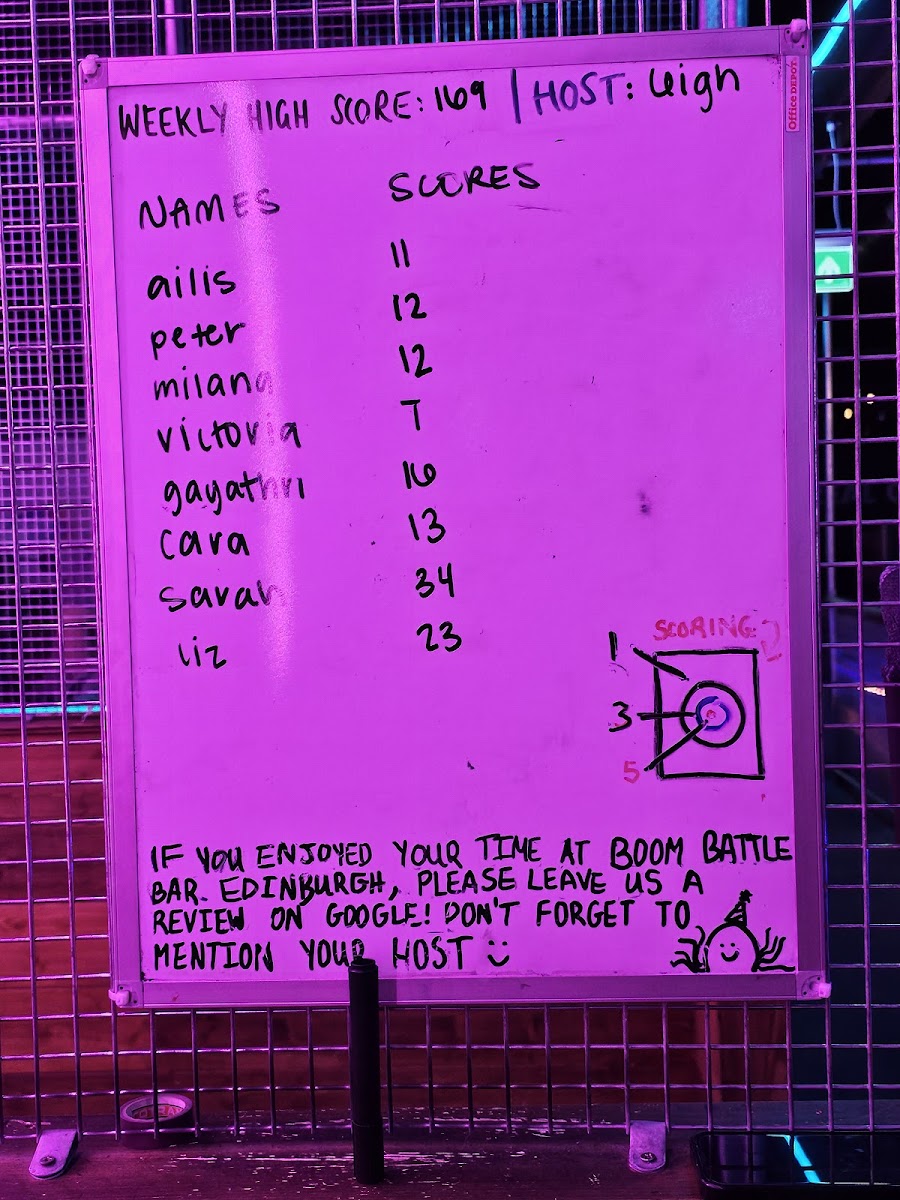 WEEKLY HIGH SCORE: 169 | HOST: Leigh
Office DEPOT
NAMES SCORES
ailis 11
peter 12
milana 12
victoria 7
gayathri 16
cara 13
sarah 34
liz 23
SCORING
1
3
5
IF YOU ENJOYED YOUR TIME AT BOOM BATTLE
BAR EDINBURGH, PLEASE LEAVE US A
REVIEW ON GOOGLE! DON'T FORGET TO
MENTION YOUR HOST